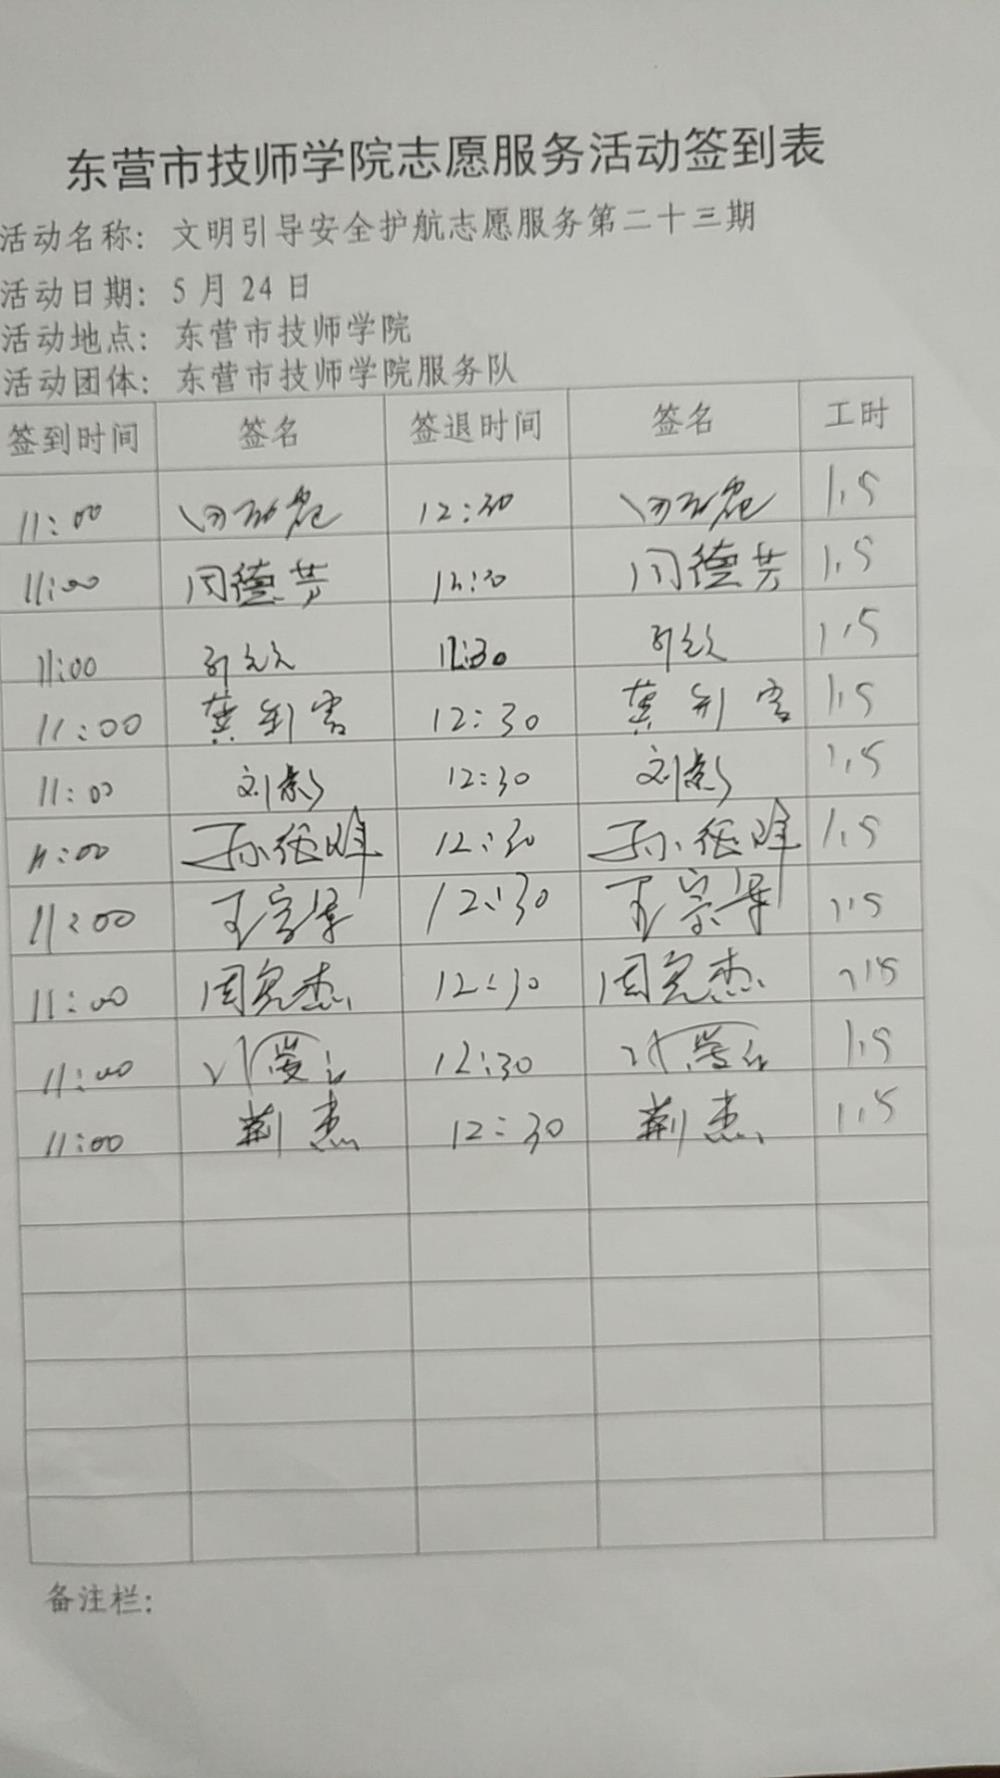 东营市技师学院志愿服务活动签到表
活动名称：文明引导安全护航志愿服务第二十三期
活动日期：5月24日
活动地点：东营市技师学院
活动团体：东营市技师学院服务队
签到时间 签名 签退时间 签名 工时
11:00 12:30 1.5
11:00 闫德芳 闫德芳 1.5
11:00 1.5
11:00 12:30 1.5
11:00 刘彩 12:30 刘彩 1.5
11:00 12:30 1.5
11:00 12:30 1.5
11:00 周克杰 12:30 周克杰 1.5
11:00 12:30 1.5
11:00 荆杰 12:30 荆杰 1.5
备注栏：